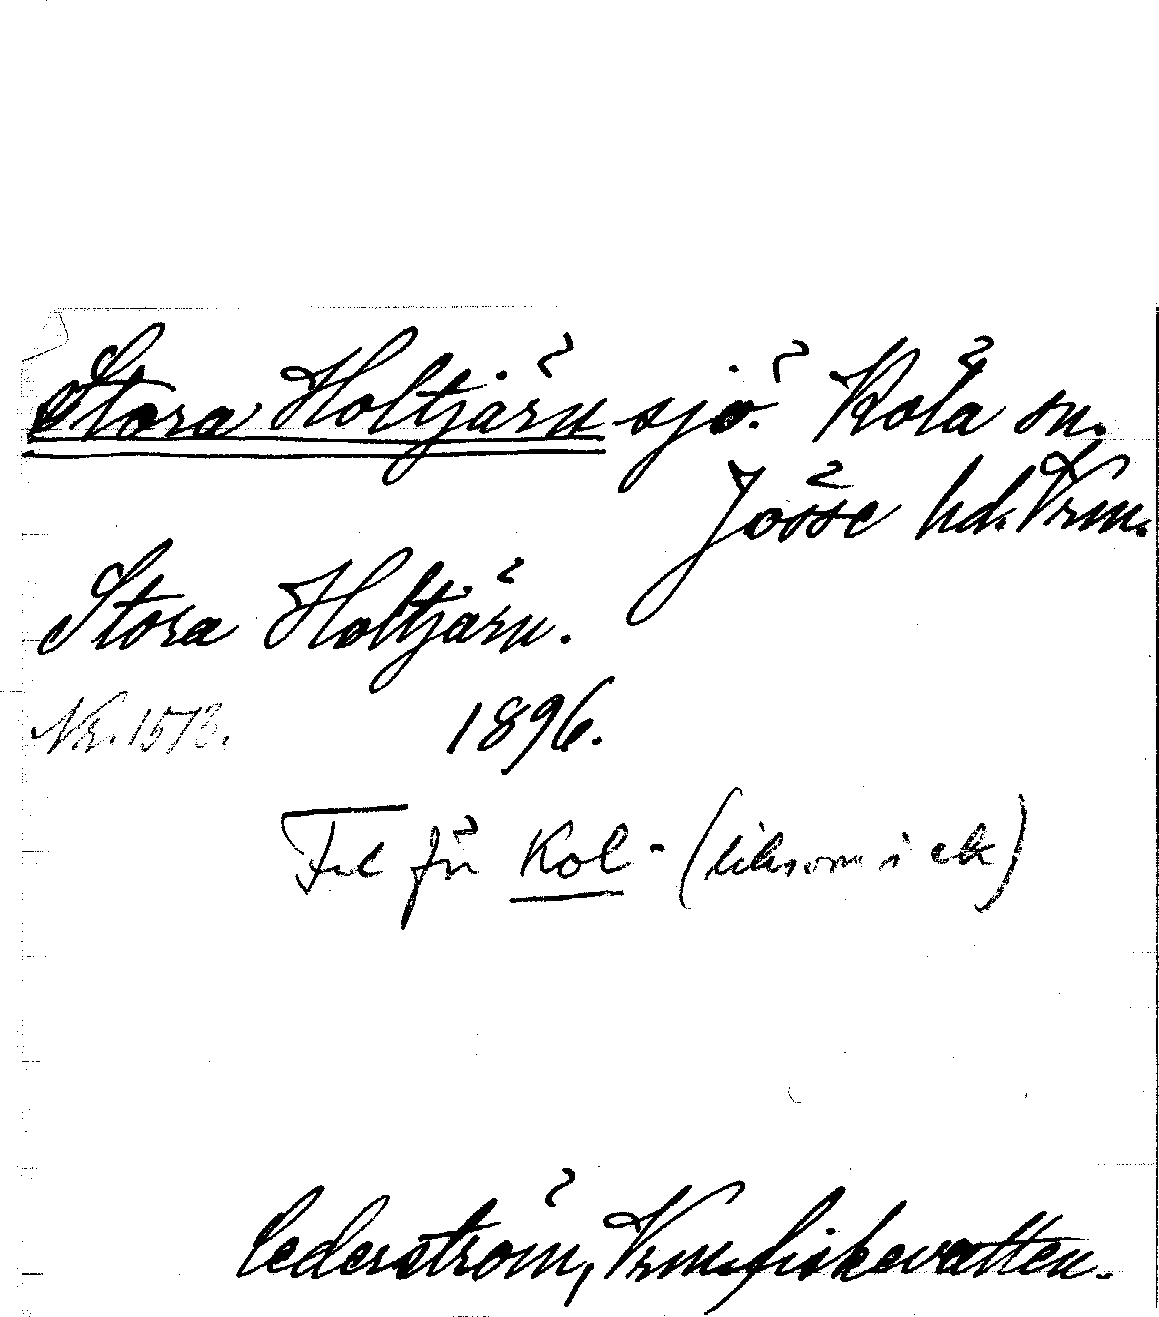 Stora Holtjärn sjö. Köla sn.
Jösse hd. Vrm.
Stora Holtjärn.
Nr. 1573. 1896.
Fel för Kol- (liksom i ek)
Cederström, Vrm. fiskevatten.